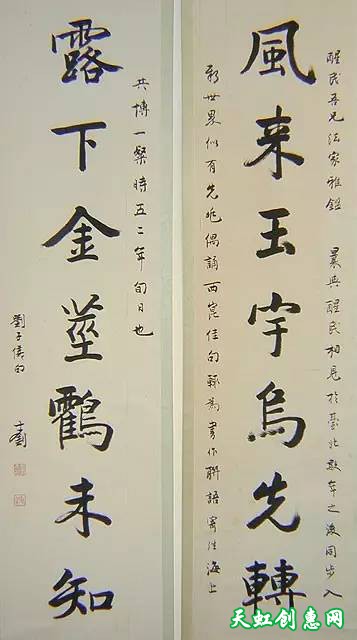 醒民吾兄法家雅鑑 曩與醒民相見於臺北數年之後同步入
風来玉宇烏先轉
新世界似有先兆偶誦西崑佳句輒為書作聯語寄往海上
共博一粲時五二年旬日也
露下金莖鸖未知
天虹创惠网